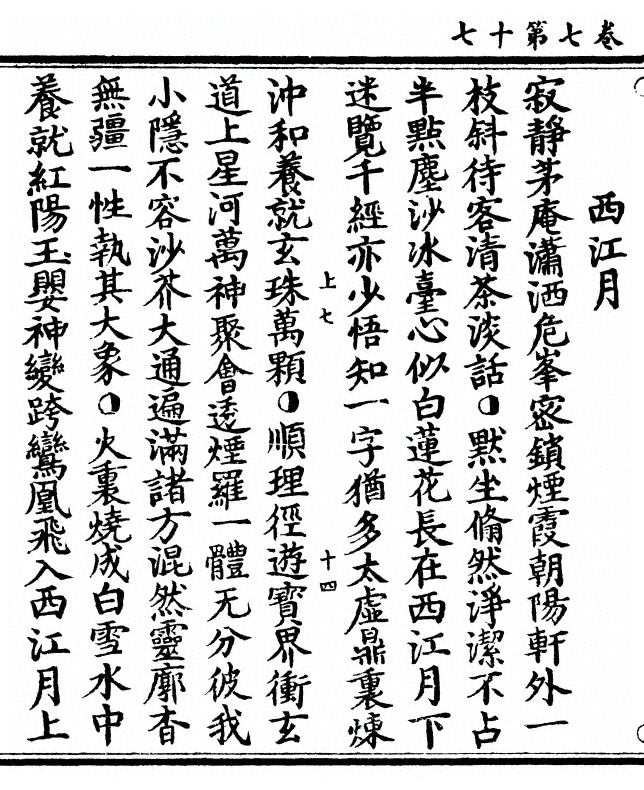 卷七第十七
西江月
寂靜茅庵瀟洒危峯密鎖煙霞朝陽軒外一
枝斜待客清茶淡話◐默坐翛然淨潔不占
半點塵沙冰臺心似白蓮花長在西江月下
迷覽千經亦少悟知一字猶多太虛鼎裏煉
上七
十四
沖和養就玄珠萬顆◐順理徑遊寶界衝玄
道上星河萬神聚會透煙羅一體无分彼我
小隱不容沙芥大通遍滿諸方混然靈廓杳
無疆一性執其大象◐火裏燒成白雪水中
養就紅陽玉嬰神變跨鸞凰飛入西江月上